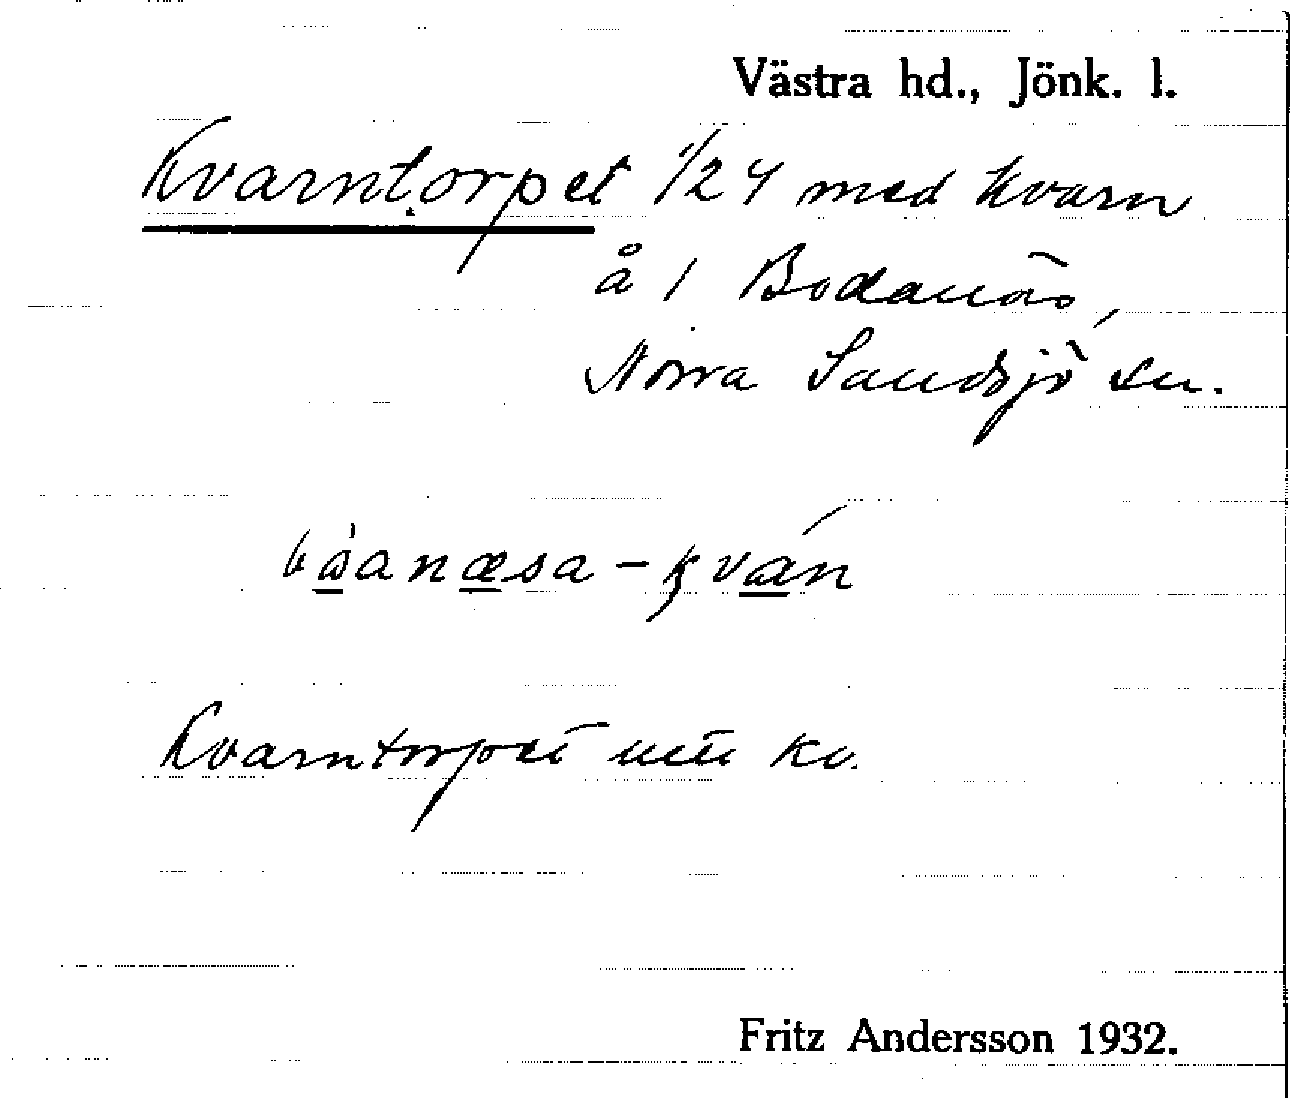 Västra hd., Jönk. l.
Kvarntorpet 1/24 med kvarn
å 1 Bodanäs,
Norra Sandsjö sn.
båanæsa-kván
Kvarntorpet kv.
Fritz Andersson 1932.